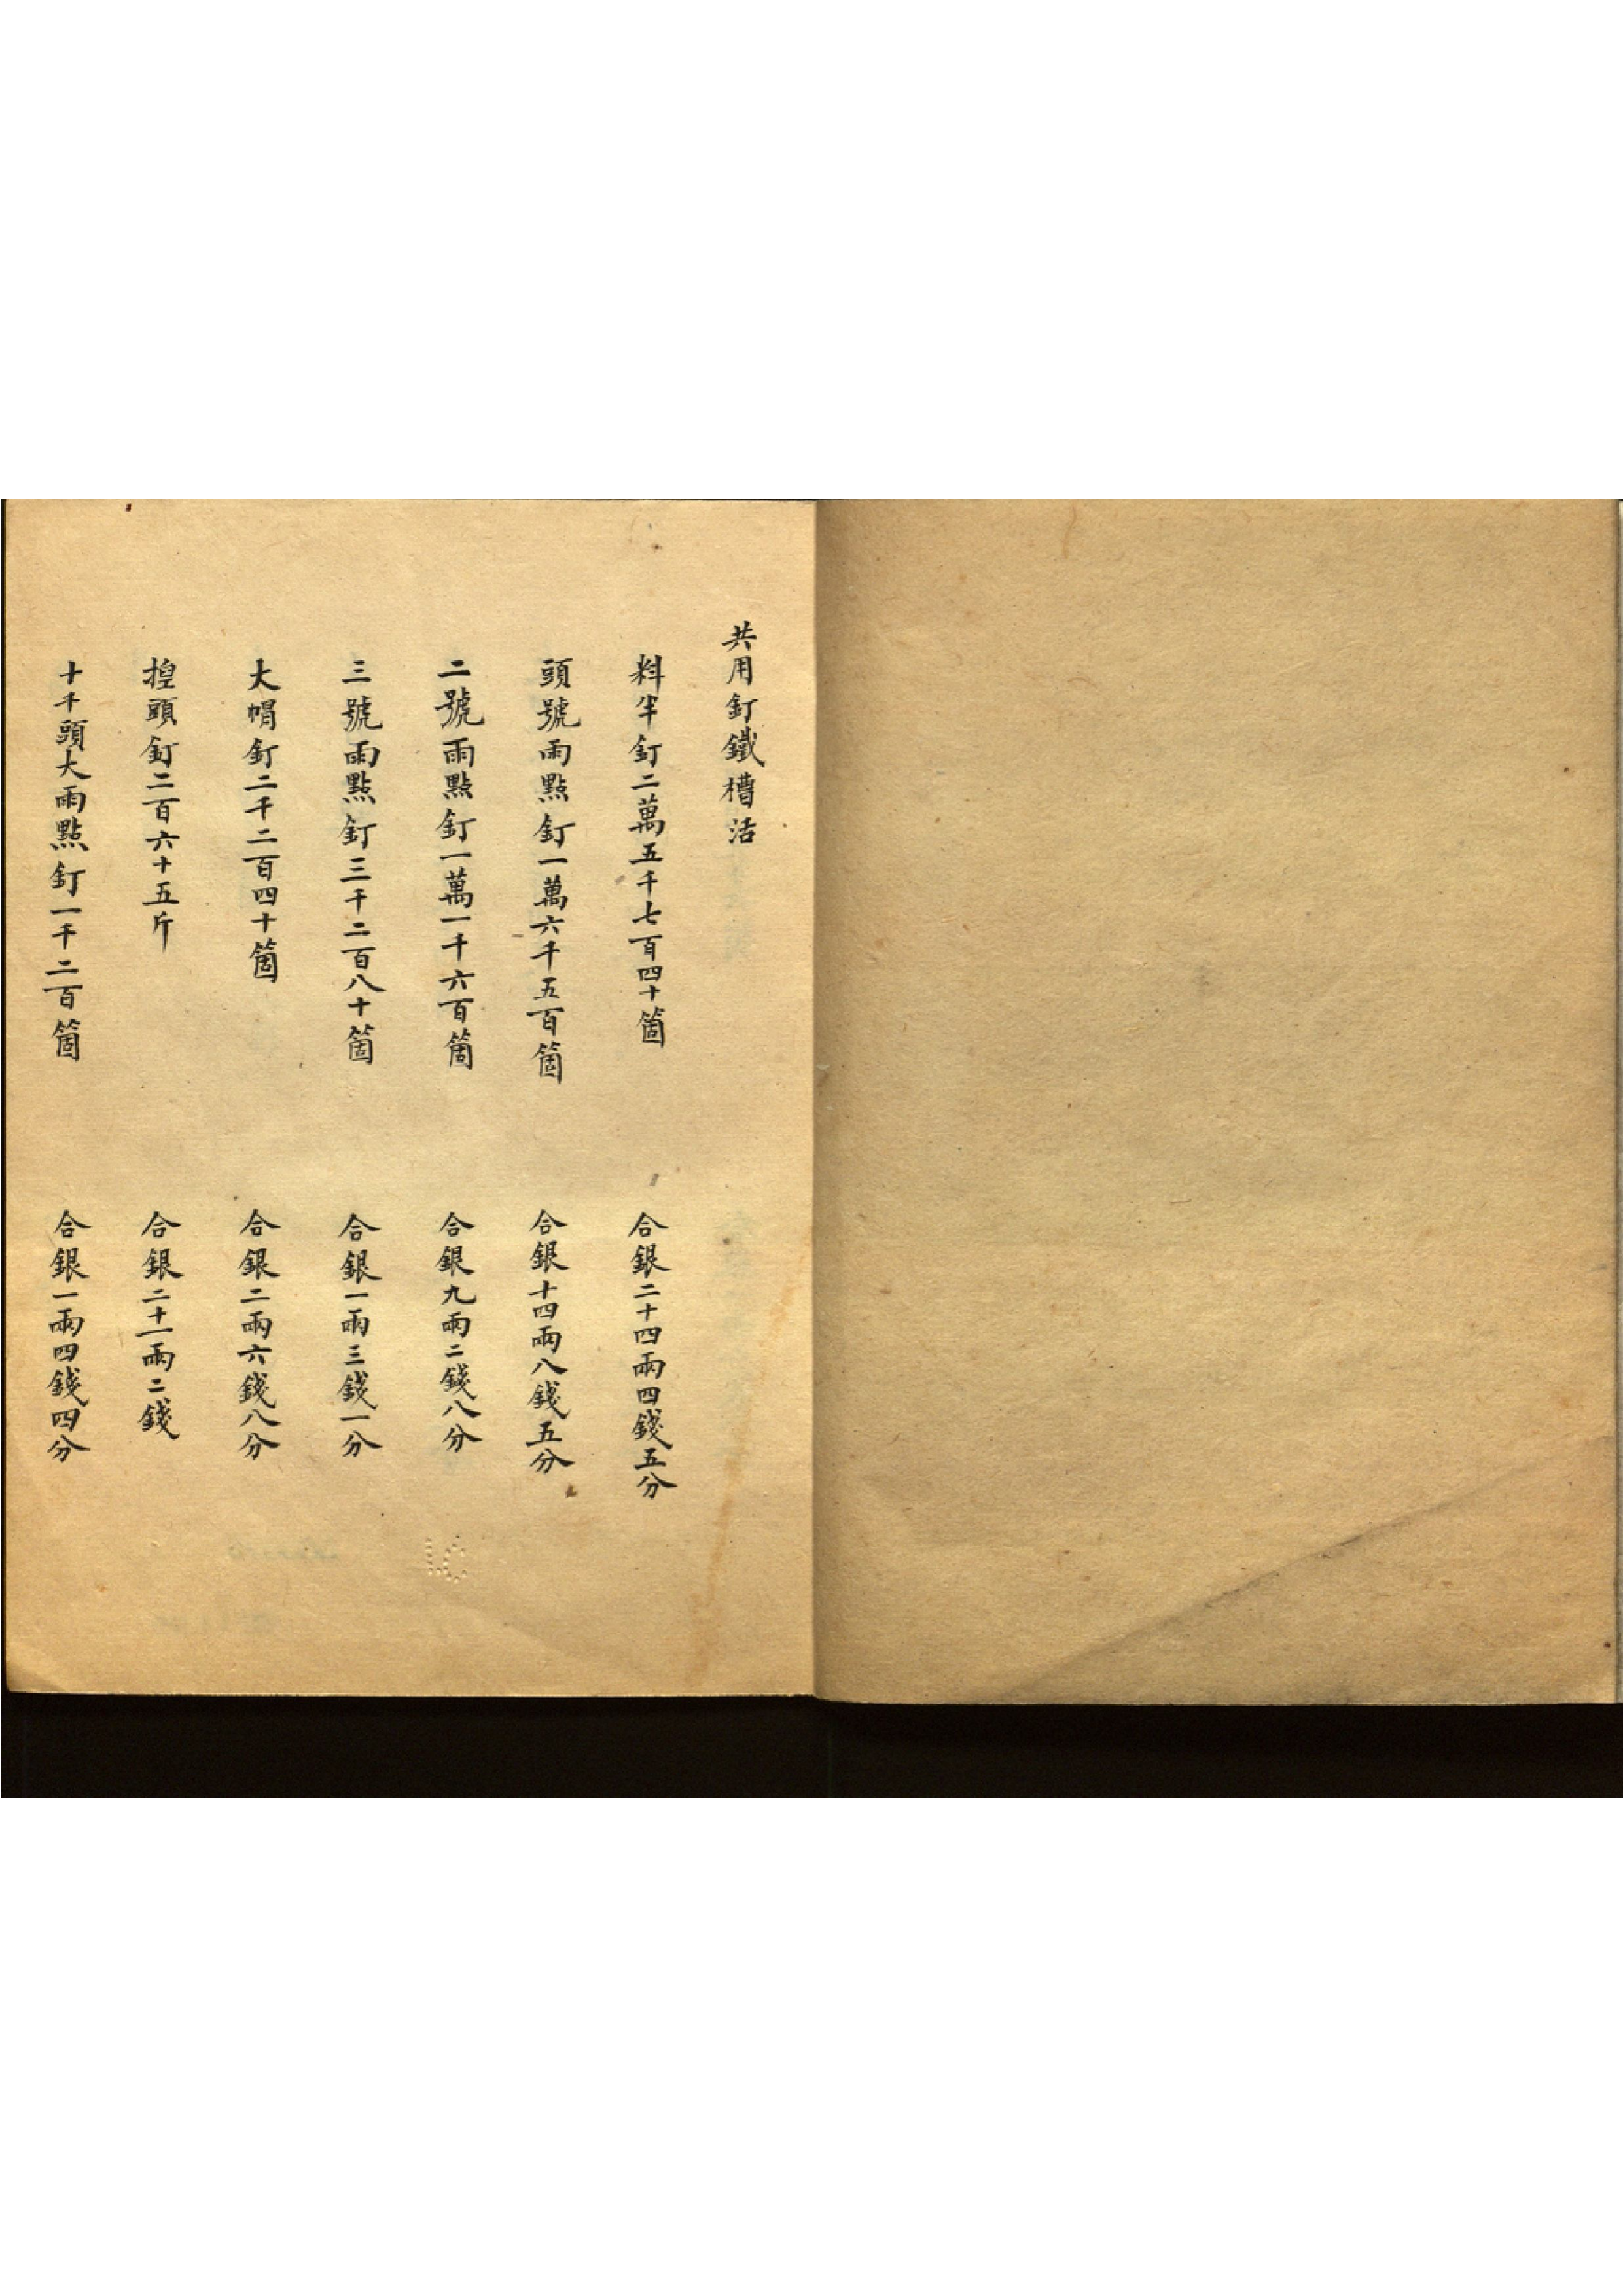 共用釘鐵槽活
料半釘二萬五千七百四十箇 合銀二十四兩四錢五分
頭號雨點釘一萬六千五百箇 合銀十四兩八錢五分
二號雨點釘一萬一千六百箇 合銀九兩二錢八分
三號雨點釘三千二百八十箇 合銀一兩三錢一分
大帽釘二千二百四十箇 合銀二兩六錢八分
揘頭釘二百六十五斤 合銀二十一兩二錢
十千頭大雨點釘一千二百箇 合銀一兩四錢四分
LC